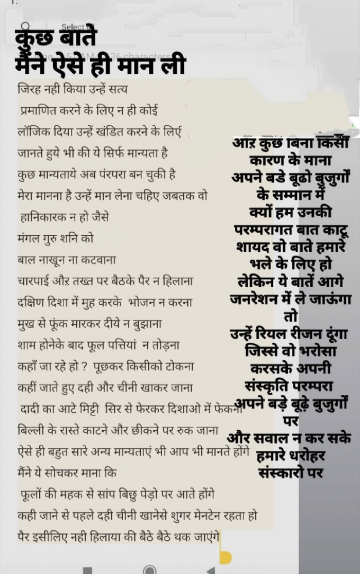 कुछ बाते
मैंने ऐसे ही मान ली
जिरह नही किया उन्हें सत्य
प्रमाणित करने के लिए न ही कोई
लॉजिक दिया उन्हें खंडित करने के लिएं
जानते हुये भी की ये सिर्फ मान्यता है
कुछ मान्यताये अब पंरपरा बन चुकी है
मेरा मानना है उन्हें मान लेना चहिए जबतक वो
हानिकारक न हो जैसे
मंगल गुरु शनि को
बाल नाखून ना कटवाना
चारपाई औऱ तख्त पर बैठके पैर न हिलाना
दक्षिण दिशा में मुह करके भोजन न करना
मुख से फूंक मारकर दीये न बुझाना
शाम होनेके बाद फूल पत्तियां न तोड़ना
कहाँ जा रहे हो ? पूछकर किसीको टोकना
कहीं जाते हुए दही और चीनी खाकर जाना
दादी का आटे मिट्टी सिर से फेरकर दिशाओ में फेकना
बिल्ली के रास्ते काटने और छीकने पर रुक जाना
ऐसे ही बहुत सारे अन्य मान्यताएं भी आप भी मानते होंगे
मैंने ये सोचकर माना कि
फूलों की महक से सांप बिछु पेड़ो पर आते होंगे
कही जाने से पहले दही चीनी खानेसे शुगर मेनटेन रहता हो
पैर इसीलिए नही हिलाया की बैठे बैठे थक जाएंगे
औऱ कुछ बिना किसी
कारण के माना
अपने बडे बूढो बुजुर्गों
के सम्मान में
क्यों हम उनकी
परम्परागत बात काटू
शायद वो बाते हमारे
भले के लिए हो
लेकिन ये बातें आगे
जनरेशन में ले जाऊंगा
तो
उन्हें रियल रीजन दूंगा
जिस्से वो भरोसा
करसके अपनी
संस्कृति परम्परा
अपने बड़े बूढ़े बुजुर्गों
पर
और सवाल न कर सके
हमारे धरोहर
संस्कारो पर